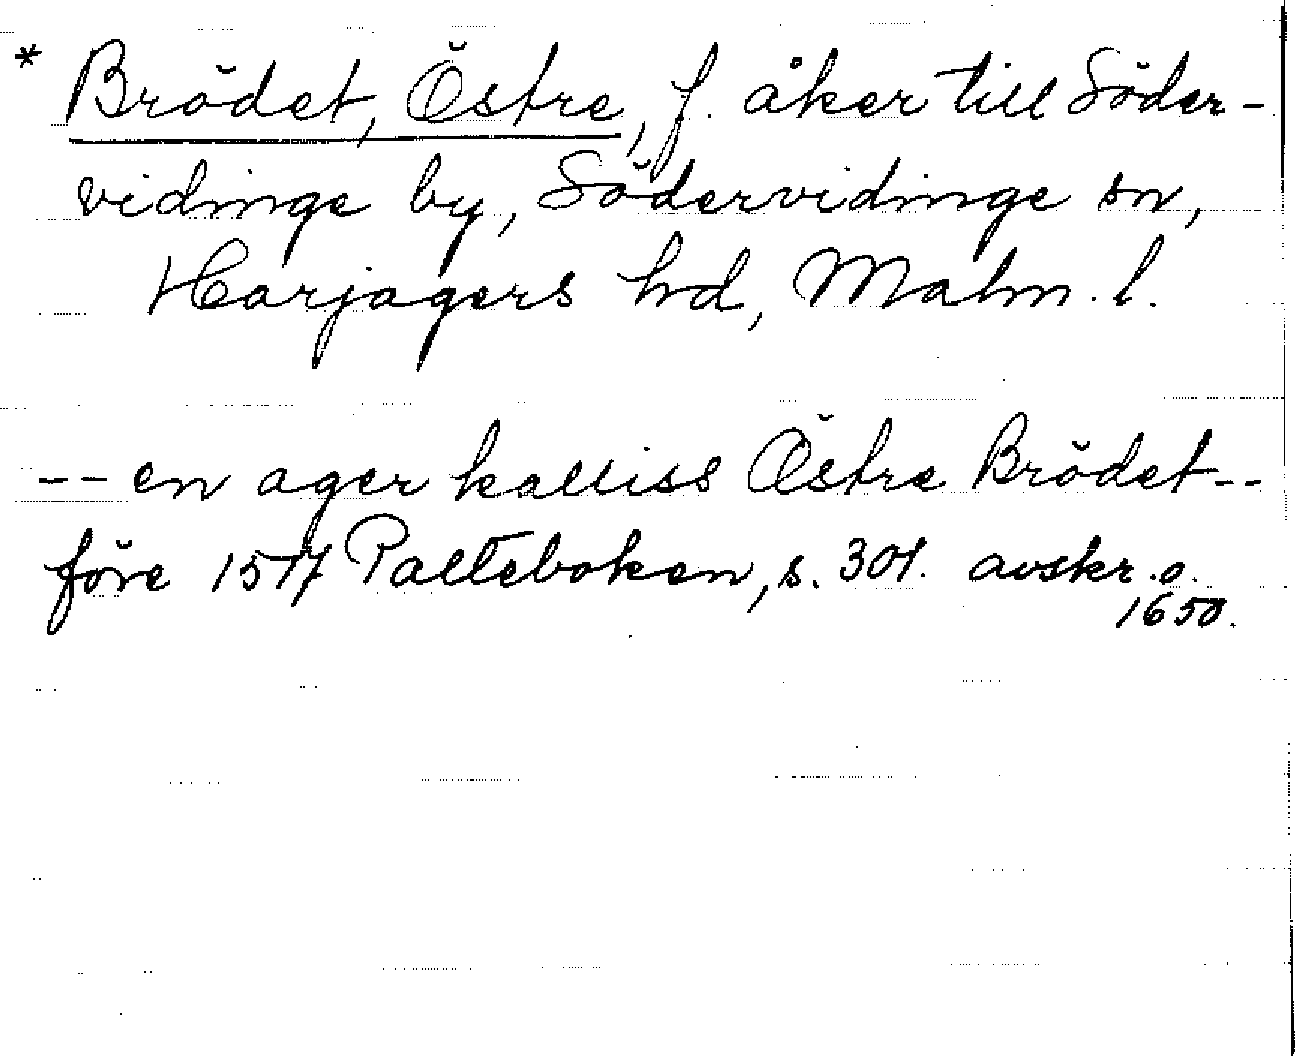 * Brödet, Östre, f. åker till Söder-
vidinge by, Södervidinge sn,
Harjagers hd, Malm. l.
-- en ager kalliss Östre Brödet --
före 1517 Palteboken, s. 301. avskr. o.
1650.